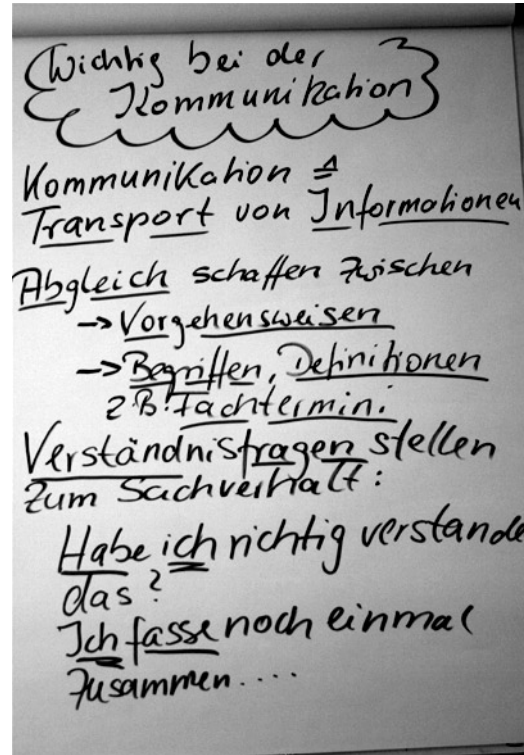 Wichtig bei der
Kommunikation
Kommunikation ≙
Transport von Informationen
Abgleich schaffen zwischen
-> Vorgehensweisen
-> Begriffen, Definitionen
z.B. Fachtermini
Verständnisfragen stellen
zum Sachverhalt:
Habe ich richtig verstande
das?
Ich fasse noch einmal
zusammen....